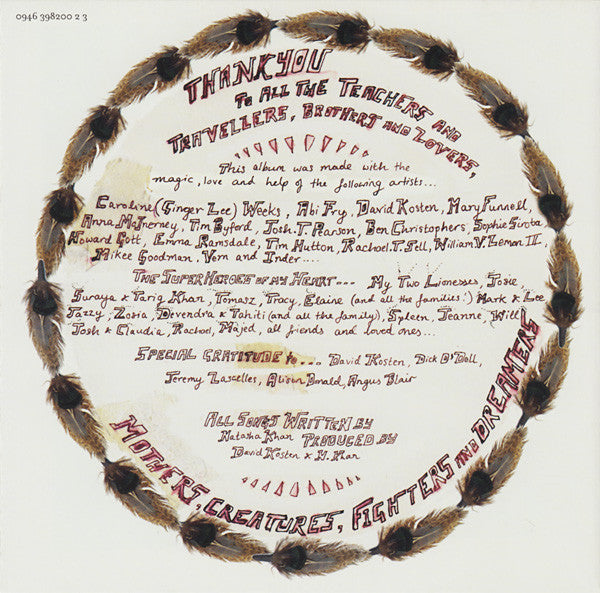 0946 398200 2 3
THANKYOU
TO ALL THE TEACHERS AND
TRAVELLERS, BROTHERS AND LOVERS,
This album was made with the
magic, love and help of the following artists...
Caroline (Ginger Lee) Weeks, Abi Fry, David Kosten, Mary Funnell,
Anna McInerney, Tim Byford, Josh.T. Pearson, Ben Christophers, Sophie Sirota,
Howard Gott, Emma Ramsdale, Tim Hutton, Rachael.T. Sell, William V. Lemon III,
Mikee Goodman, Vern and Inder....
THE SUPER HEROES OF MY HEART.... My Two Lionesses, Josie
Suraya & Tariq Khan, Tomasz, Tracy, Elaine (and all the families!) Mark & Lee
Jazzy, Zosia, Devendra & Tahiti (and all the family), Spleen, Jeanne, Will
Josh & Claudia, Rachael, Majed, all friends and loved ones...
SPECIAL GRATITUDE to.... David Kosten, Dick O'Dell,
Jeremy Lascelles, Alison Donald, Angus Blair
ALL SONGS WRITTEN BY
Natasha Khan PRODUCED BY
David Kosten & N. Khan
MOTHERS, CREATURES, FIGHTERS AND DREAMERS